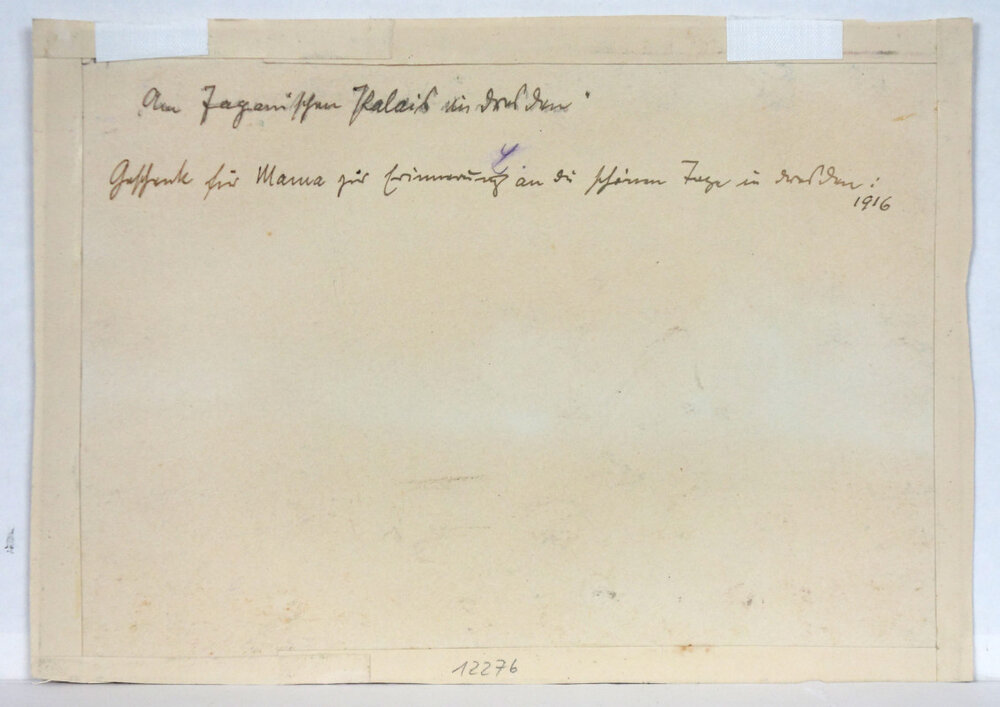 Am Japanischen Palais in Dresden"
Geschenk für Mama zur Erinnerung an die schönen Tage in Dresden:
1916
12276